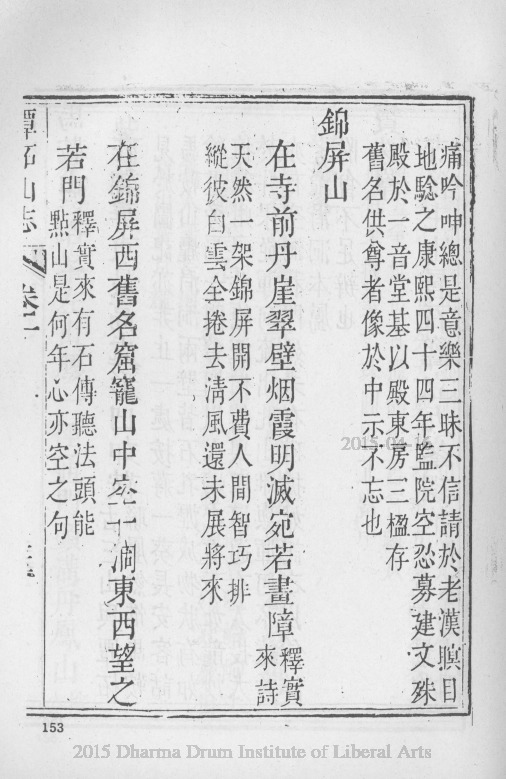 痛吟呻總是意樂三昧不信請於老漢瞑目
地驗之康熙四十四年監院空忍募建文殊
殿於一音堂基以殿東房三楹存
舊名供尊者像於中示不忘也
錦屏山
在寺前丹崖翠壁烟霞明滅宛若畫障釋實來詩
天然一架錦屏開不費人間智巧排
縱彼白雲全捲去清風還未展將來
在錦屏西舊名窟窿山中空一洞東西望之
若門釋實來有石傳聽法頭能
點山是何年心亦空之句
潭柘山志 卷一
153
2015-04-15
2015 Dharma Drum Institute of Liberal Arts